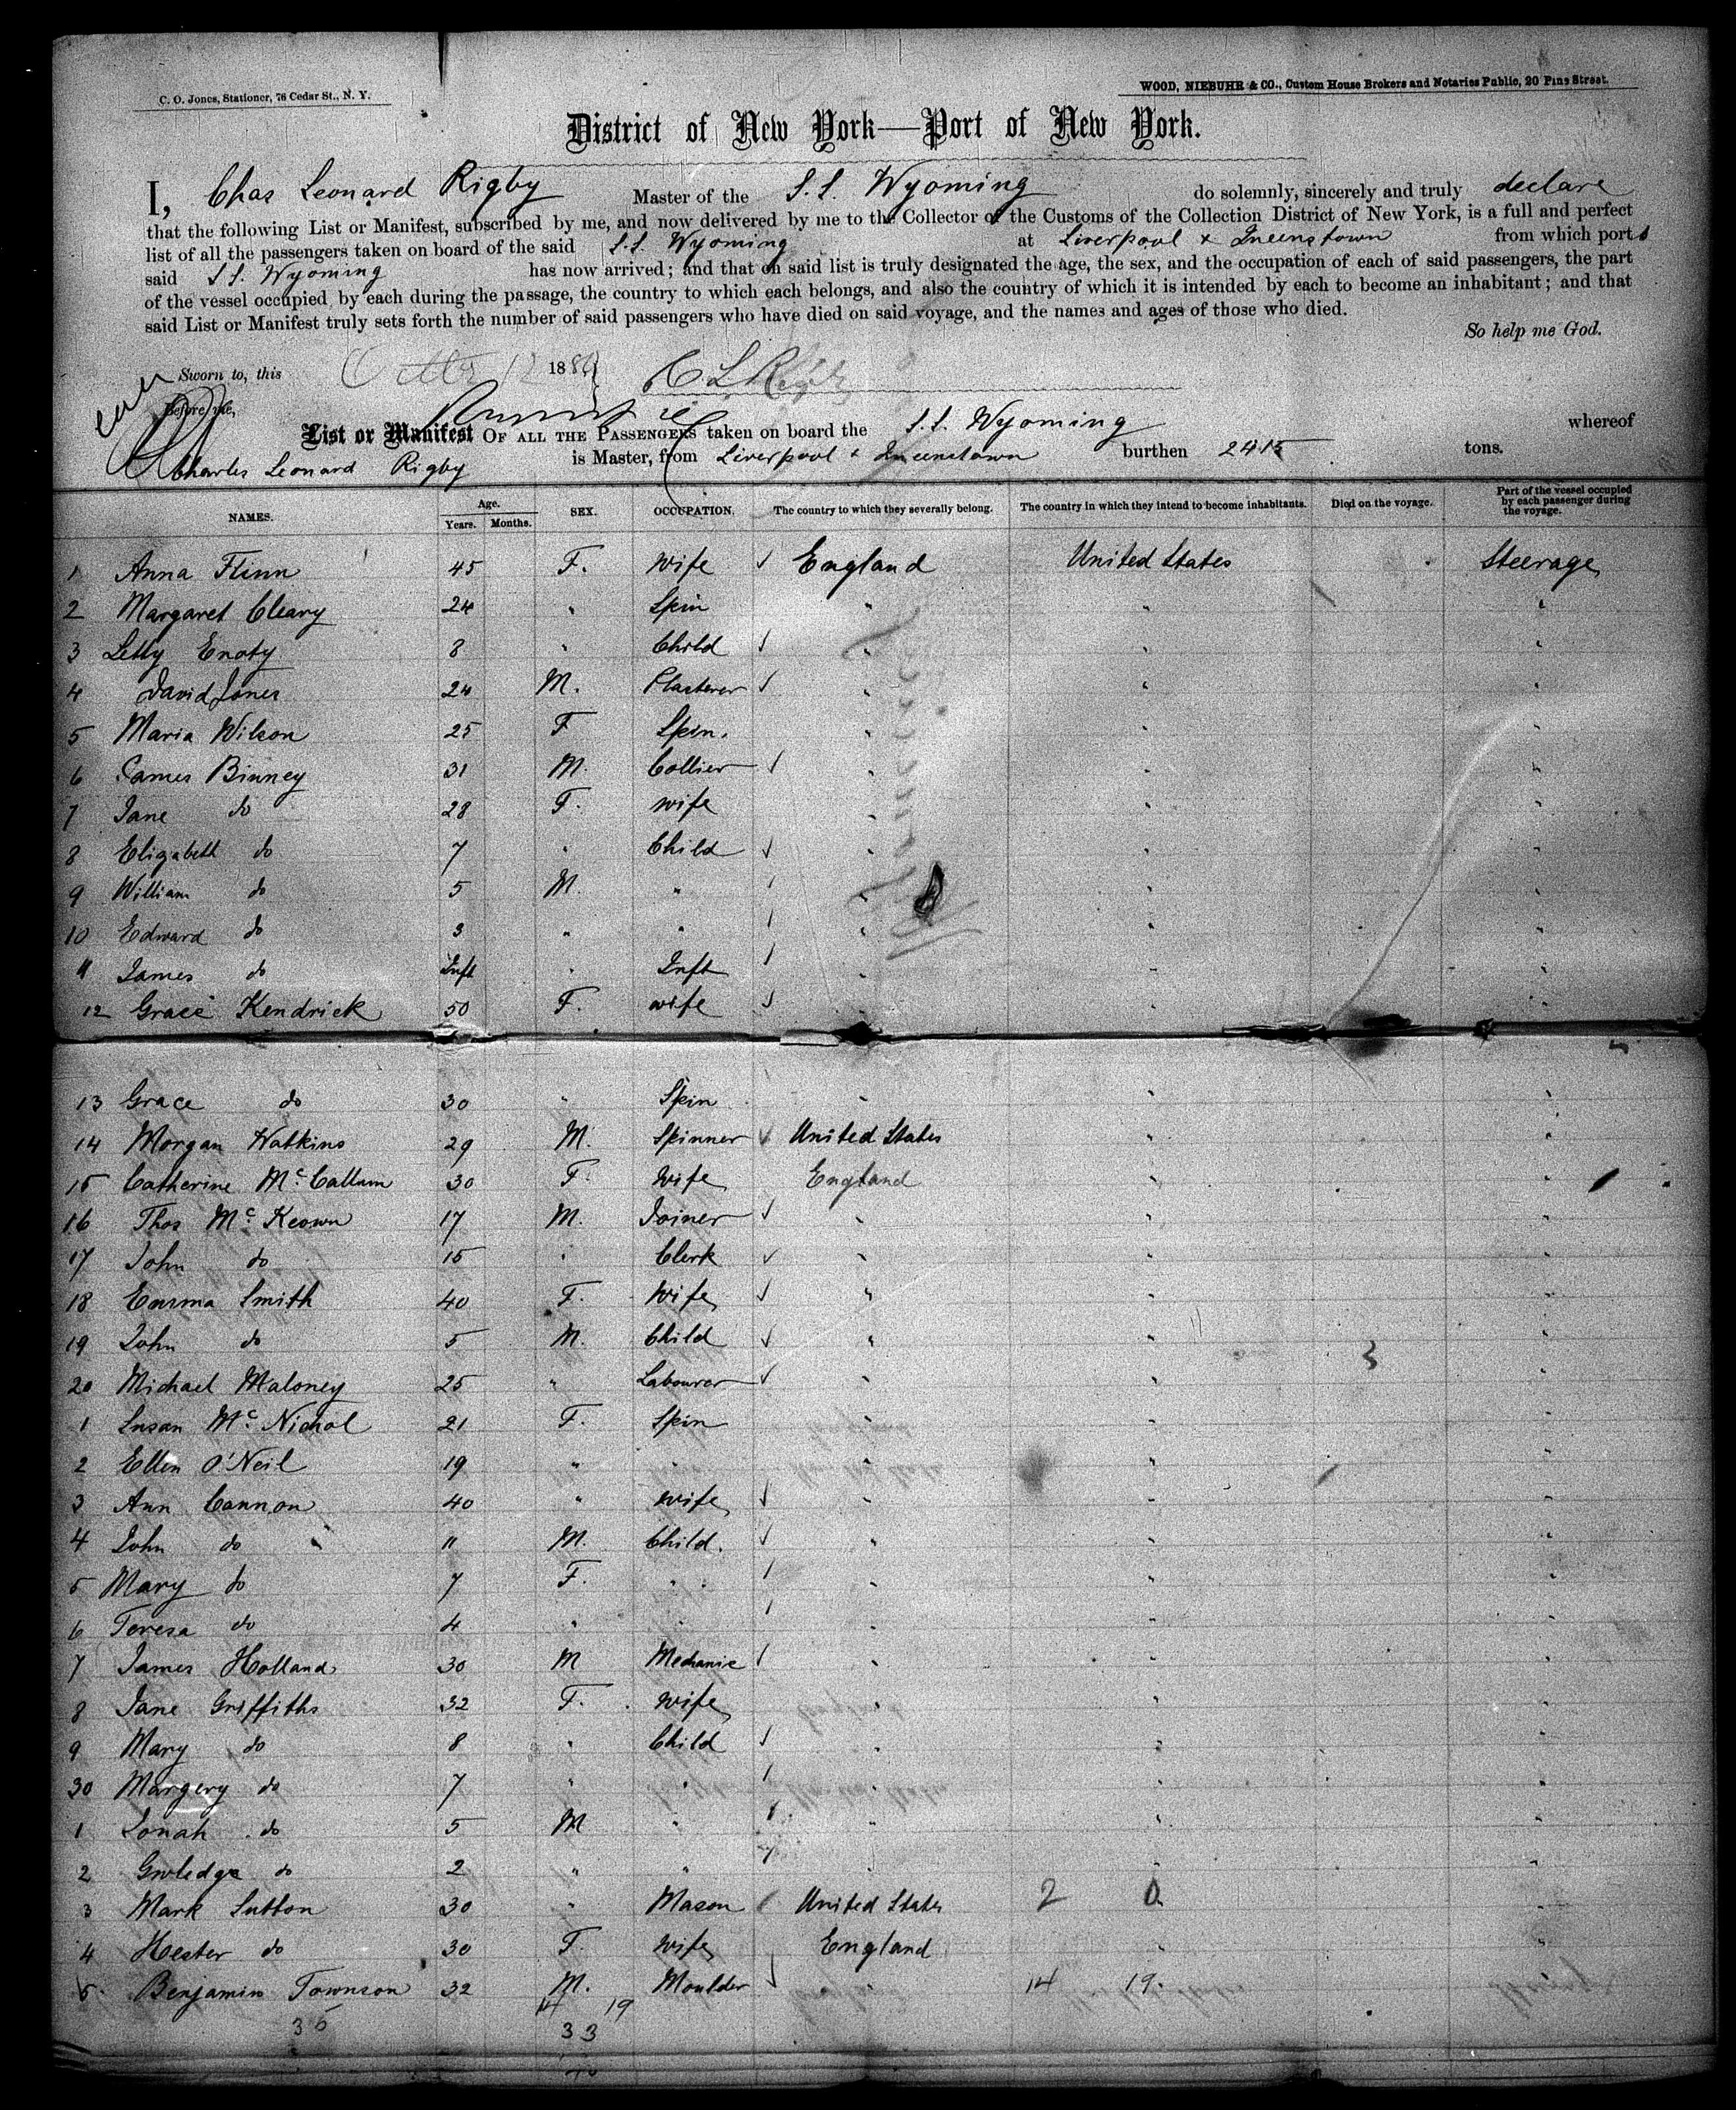 C. O. Jones, Stationer, 76 Cedar St., N. Y.
WOOD, NIEBUHR & CO., Custom House Brokers and Notaries Public, 20 Pine Street.
District of New York—Port of New York.
I, Chas Leonard Rigby Master of the S.S. Wyoming do solemnly, sincerely and truly declare
that the following List or Manifest, subscribed by me, and now delivered by me to the Collector of the Customs of the Collection District of New York, is a full and perfect
list of all the passengers taken on board of the said S.S. Wyoming at Liverpool & Queenstown from which ports
said S.S. Wyoming has now arrived; and that on said list is truly designated the age, the sex, and the occupation of each of said passengers, the part
of the vessel occupied by each during the passage, the country to which each belongs, and also the country of which it is intended by each to become an inhabitant; and that
said List or Manifest truly sets forth the number of said passengers who have died on said voyage, and the names and ages of those who died.
So help me God.
Sworn to, this 12 188 C L Rigby
Before me,
List or Manifest OF ALL THE PASSENGERS taken on board the S.S. Wyoming whereof
Charles Leonard Rigby is Master, from Liverpool & Queenstown burthen 2415 tons.
NAMES. Age. Years. Months. SEX. OCCUPATION. The country to which they severally belong. The country in which they intend to become inhabitants. Died on the voyage. Part of the vessel occupied by each passenger during the voyage.
1 Anna Flinn 45 F. Wife England United States Steerage
2 Margaret Cleary 24 " Spin " " "
3 Letty Enoty 8 " Child " " "
4 David Jones 24 M. Plasterer " " "
5 Maria Wilson 25 F Spin. " " "
6 James Binney 31 M. Collier " " "
7 Jane do 28 F. Wife " " "
8 Elizabeth do 7 " Child " " "
9 William do 5 M. " " " "
10 Edward do 3 " " " " "
11 James do Inft " Inft " " "
12 Grace Kendrick 50 F. Wife " " "
13 Grace do 30 " Spin " " "
14 Morgan Watkins 29 M. Spinner United States " "
15 Catherine McCallum 30 F. Wife England " "
16 Thos McKeown 17 M. Joiner " " "
17 John do 15 " Clerk " " "
18 Emma Smith 40 F. Wife " " "
19 John do 5 M. Child " " 3 "
20 Michael Maloney 25 " Labourer " " "
1 Susan McNichol 21 F. Spin " " "
2 Ellen O'Neil 19 " " " " "
3 Ann Cannon 40 " Wife " " "
4 John do 11 M. Child. " " "
5 Mary do 7 F. " " " "
6 Teresa do 4 " " " " "
7 James Holland 30 M Mechanic " " "
8 Jane Griffiths 32 F. Wife " " "
9 Mary do 8 " Child " " "
30 Margery do 7 " " " " "
1 Jonah do 5 M " " " "
2 Gwledge do 2 " " " " "
3 Mark Sutton 30 " Mason United States 2 0 "
4 Hester do 30 F. Wife England " "
5 Benjamin Townson 32 M. Moulder " 14 19
14 19
35 33